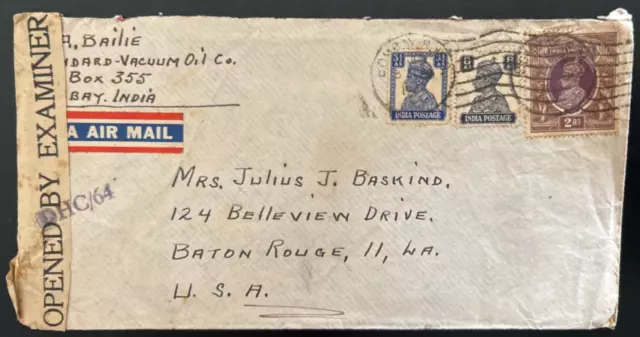 A, Bailie
NDARD-VACUUM OIL CO.
BOX 355
BAY. INDIA
A AIR MAIL
OPENED BY EXAMINER
DHC/64
INDIA POSTAGE
INDIA POSTAGE
INDIA POSTAGE
2RS
MRS. JULIUS J. BASKIND.
124 BELLEVIEW DRIVE.
BATON ROUGE, 11, LA.
U. S. A.